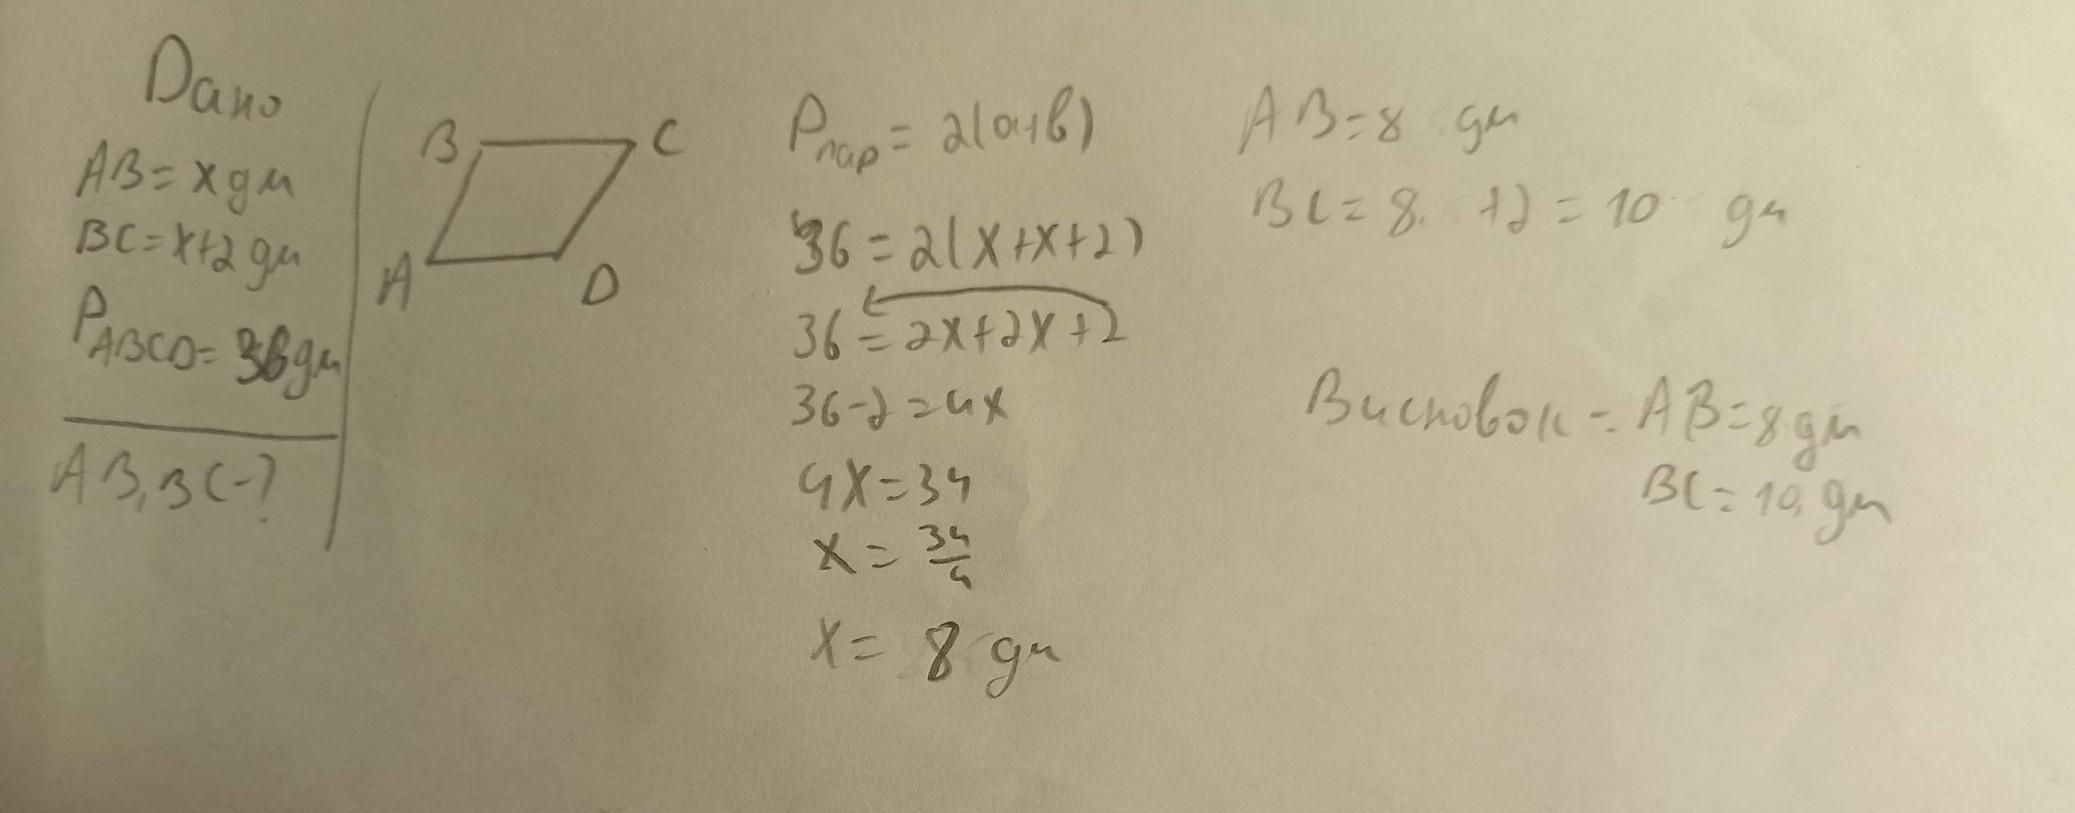 Дано
AB = x дм
BC = x+2 дм
P ABCD = 36 дм
AB, BC - ?
B C
A D
Pпар = 2(a+b)
36 = 2(x+x+2)
36 = 2x+2x+2
36-2 = 4x
4x = 34
x = 34/4
x = 8 дм
AB = 8 дм
BC = 8 +2 = 10 дм
Висновок -: AB = 8 дм
BC = 10, дм